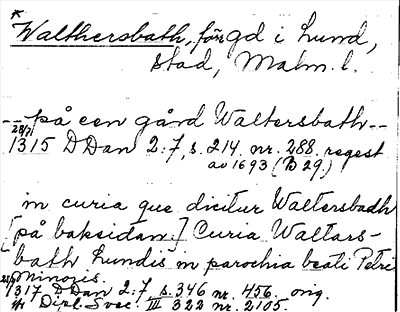 * Walthersbath, förgd i Lund,
stad, Malm. l.
-- på een gård Waltersbath --
28/7 1315 DDan 2:7, s. 214 nr. 288, regest
av 1693 (B 29.)
in curia que dicitur Waltersbadh
[på baksidan:] Curia Waltars-
bath Lundis in parochia beati Petri
Minoris
1317 DDan 2:7 s. 346 nr. 456. orig.
Dipl. Svec. III 322 nr. 2105.